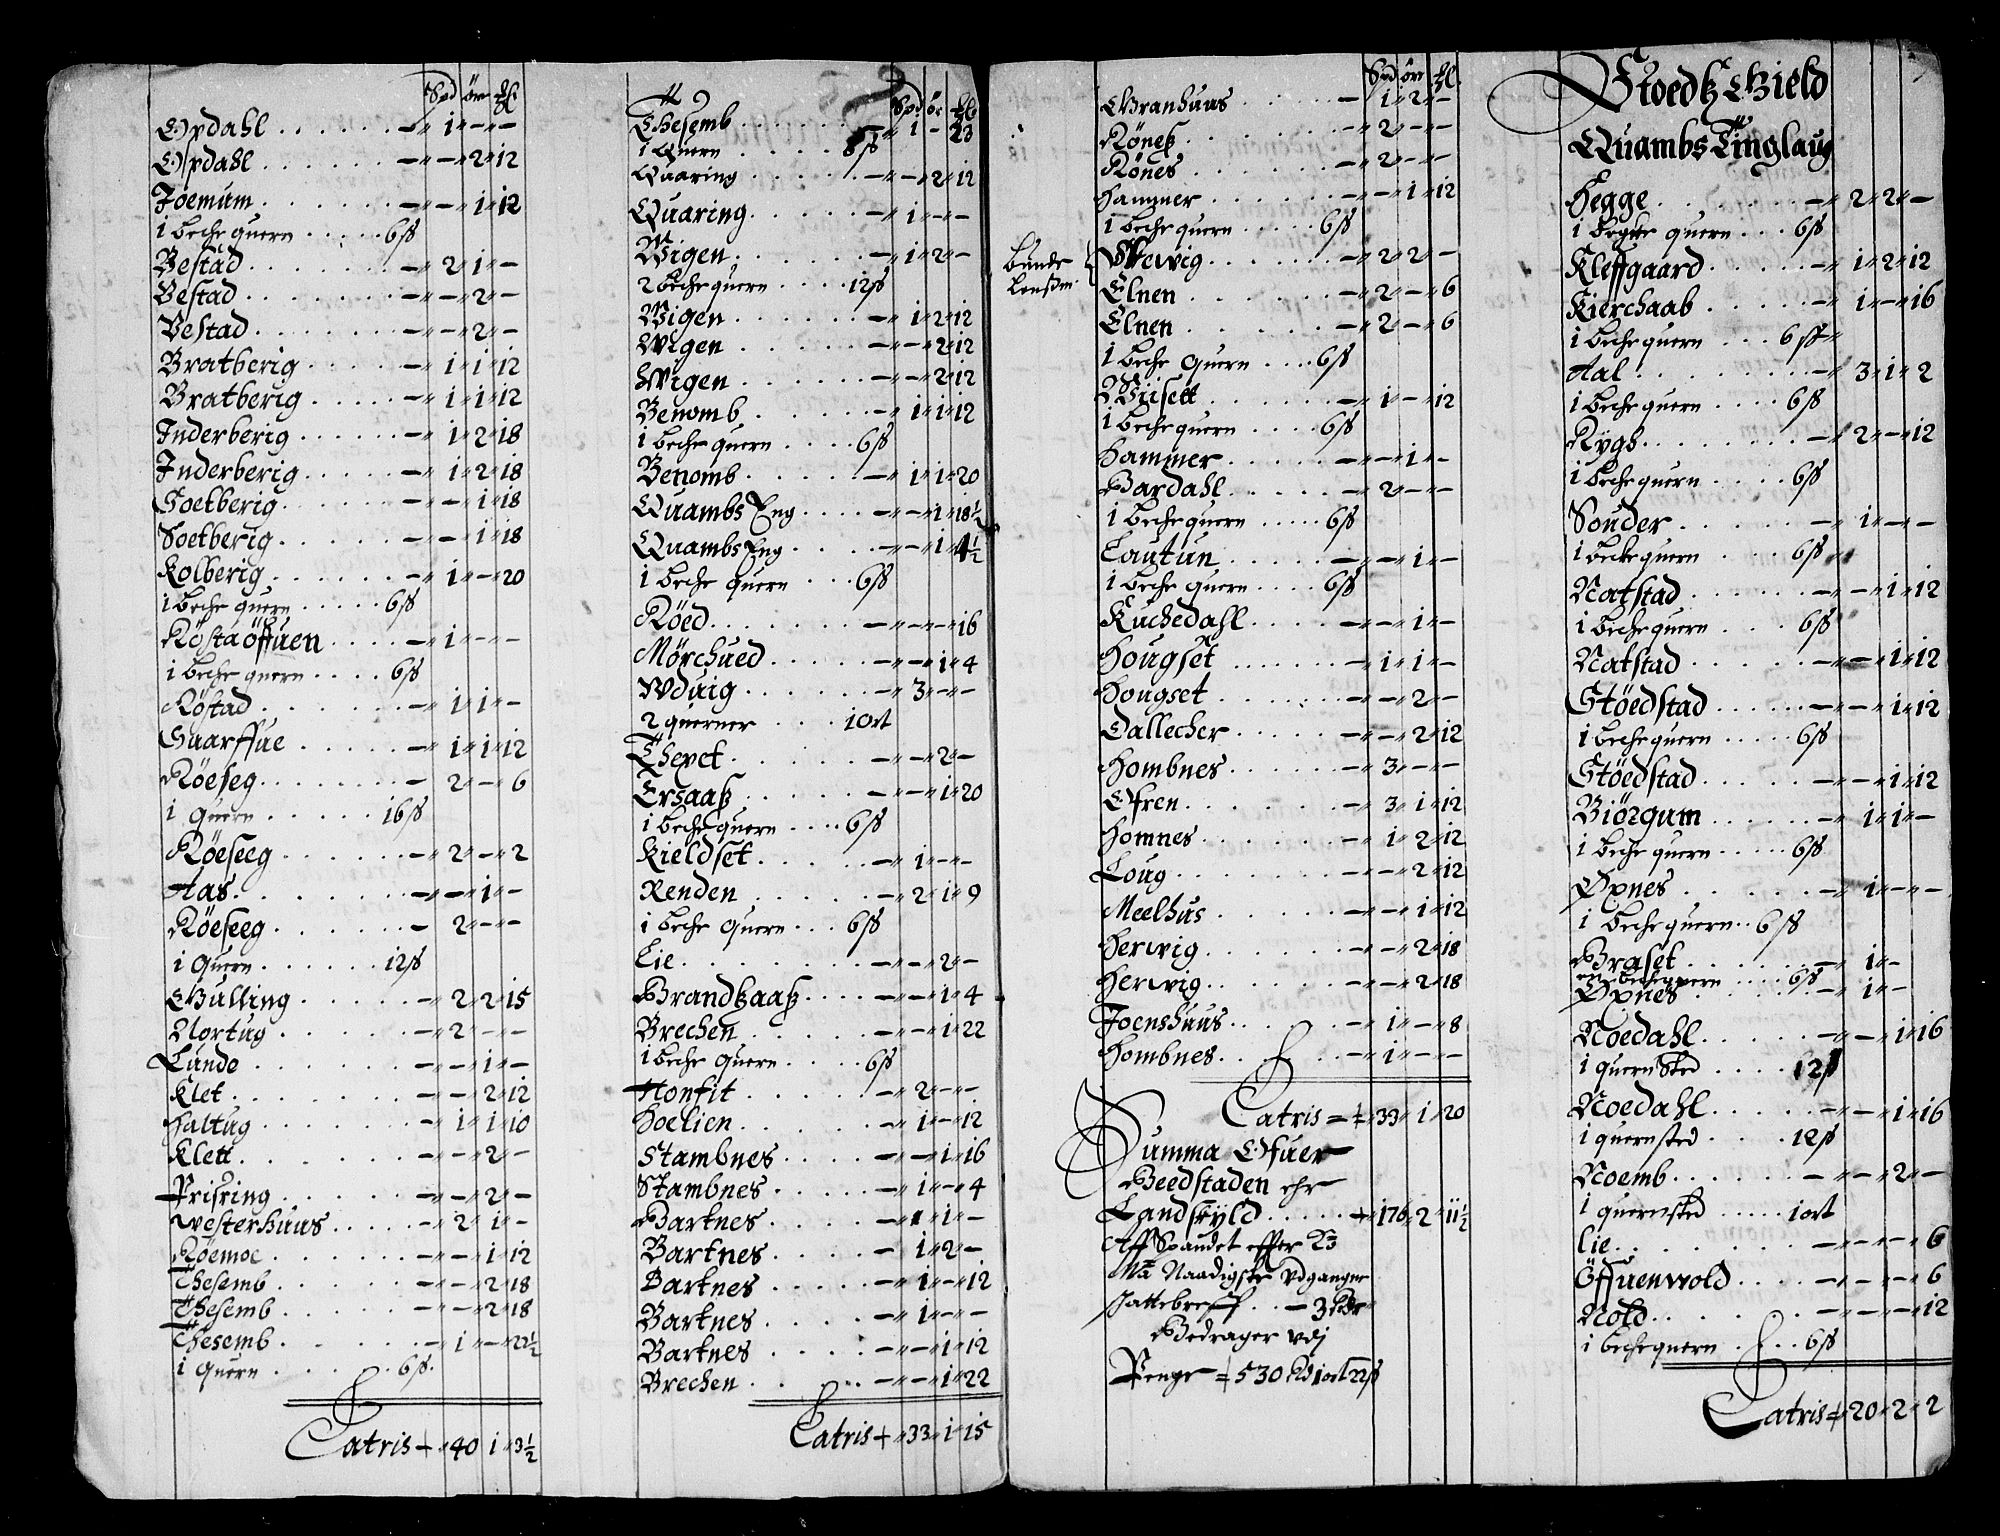 Spd ör
Opdahl . . . . . . — " 1 " — " —
Opdahl . . . . . . — " — " 2 " 12
Joemum . . . . . . — " — " 1 " 12
1 beche quern . . . . . 6 ß
Bestad . . . . . . — " 2 " 1 " —
Bestad . . . . . . — " — " 2 " —
Bestad . . . . . . — " — " 2 " —
Bratberig . . . . . — " 1 " 1 " 12
Bratberig . . . . . — " 1 " 1 " 12
Inderberig . . . . . — " 1 " 2 " 18
Inderberig . . . . . — " 1 " 2 " 18
Soetberig . . . . . — " — " 1 " 18
Soetberig . . . . . — " — " 1 " 18
Kolberig . . . . . . — " 1 " — " 20
1 beche quern . . . . . 6 ß
Röstaöffuen . . . . — " 1 " — " —
1 beche quern . . . . 6 ß
Röstad . . . . . . — " 1 " 1 " —
Guarffue . . . . . — " 1 " 1 " 12
Röeseg . . . . . . — " 2 " — " 6
1 quern . . . . . . 16 ß
Röeseeg . . . . . . — " 2 " — " 2
Aas . . . . . . . — " — " 1 " —
Röeseeg . . . . . . — 2 " — " —
1 quern . . . . . . 12 ß
Gulling . . . . . . — " 2 " 2 " 15
Nortug . . . . . . — " 2 " — " —
Lunde . . . . . . — " — " 1 " —
Klet . . . . . . . — " — " 2 " 12
Haltug . . . . . . — " 1 " 1 " 10
Klett . . . . . . . — " — " 2 " —
Prisring . . . . . . — " — " 2 " —
Westerhuus . . . . . — " 2 " 1 " —
Röemoe . . . . . . — " — " 1 " 12
Thesemb . . . . . . — " — " 2 " 18
Thesemb . . . . . . — " — " 2 " 18
Thesemb . . . . . . — " 1 " — " 22½
1 quern . . . . . . 6 ß
Latris — " 40 1 " 3½
Spd ör
Thesemb . . . . . . — " 1 " — 23
1 quern . . . . . 8 ß
Quaring . . . . . . — " — " 2 " 12
Quaring . . . . . . — " 1 " — " —
Wigen . . . . . . — " 1 " 2 " —
2 beche quern . . . . 12 ß
Wigen . . . . . . — " 1 " 2 " 12
Wigen . . . . . . — " — " 2 " 12
Wigen . . . . . . — " — " 2 " 12
Benomb . . . . . . — " 1 " 1 " 12
1 beche quern . . . . 6 ß
Benomb . . . . . . — " 1 " 1 " 20
Quambs Eng . . . . — " — " 1 " 18½
Quambs Eng . . . . — " — " 1 " 4½
1 beche quern . . . 6 ß
Röed . . . . . . . — " — " — " 16
Mörchued . . . . . — " — " 1 " 4
Wduig . . . . . . — " 3 " — " —
2 querner . . . . 1 ort
Thepet . . . . . . — " — " 2 " —
Ersaaß . . . . . . — " — " 1 " 20
1 beche quern . . . . 6 ß
Kieldset . . . . . . — " 1 " — " —
Renden . . . . . . — " 2 " 1 " 9
1 beche quern . . . 6 ß
Lie . . . . . . . — " — " 2 " —
Brandtzaaß . . . . — " — " 1 " 4
Brechen . . . . . — " — " 1 " 22
1 beche quern . . . . 6 ß
Honfit . . . . . . — " 2 " — " —
Hoelien . . . . . . — " 1 " — " 12
Stambnes . . . . . — " — " 1 " 16
Stambnes . . . . . — " 1 " — " 4
Bartnes . . . . . . — " 1 " 1 " —
Bartnes . . . . . . — 1 " 2 " —
Bartnes . . . . . . — " 1 " — " 12
Bartnes . . . . . . — " 1 " — " —
Bartnes . . . . . . — " — " 1 " 12
Brechen . . . . . . — " — " 1 " 22
Latris + " 33 " 1 " 15
Spd ör
Granhuus . . . . . — 1 " 2 " —
Rönes . . . . . . — " 2 " — " —
Rönes . . . . . . — " 2 " — " —
Hammer . . . . . . — " — " 1 " 12
1 beche quern . . . . 6 ß
Bunde
Lensm.
Wewig . . . . . . — " 2 " 2 " —
Elnen . . . . . . — " 2 " — " 6
Elnen . . . . . . — " 2 " — " 6
1 beche quern . . . . 6 ß
Wiisett . . . . . . — " 1 " — " 12
1 beche quern . . . . 6 ß
Hammer . . . . . . — " — " 1 " —
Bardahl . . . . . . — " 2 " — " —
1 beche quern . . . . . 6 ß
Lautun . . . . . . — " — " 1 " —
1 beche quern . . . . 6 ß
Kuchedahl . . . . . — " — " 1 " —
Hougset . . . . . . — " 1 " 1 " —
Hougset . . . . . . — " — " 2 " —
Dallecher . . . . . — " — " 2 " 12
Hombnes . . . . . . — " 3 " — " —
Ofren . . . . . . — " 3 " 1 " 12
Homnes . . . . . . — " 1 " 2 " 12
Loug . . . . . . . — " — " 2 " 12
Meelhus . . . . . . — " — " 1 " 12
Herwig . . . . . . — " — " 2 " 18
Herwig . . . . . . — " — " 2 " 18
Joenshuus . . . . . — " 1 " — " 8
Hombnes . . . . . . — " 1 " — " —
Latris = " 33 " 1 " 20
Summa Ofuer
Beedstaden ehr
Landskyld . . . . . + " 176 " 2 " 11½
Aff Spandet effter
Naadigste Vdganger
. . — 3
Bedrager vdj
Penge = 530 Rd 1 ort 22 ß
Stoedtz Gield
Quambs Tinglaug
Hegge . . . . . . — " 2 " 2 " —
1 becke quern . . . 6 ß
Kleffgaard . . . . . — " 1 " 2 " 12
Kierchaab . . . . . — " 1 " — " 16
1 beche quern . . . 6 ß
Aal . . . . . . . — " 3 " 1 " 2
1 beche quern . . . . 6 ß
Rygh . . . . . . . — " 2 " — " 12
1 beche quern . . . . 6 ß
Sonder . . . . . . — " 1 " — " —
1 becke quern . . . . 6 ß
Natstad . . . . . . — " — " 1 " 12
1 beche quern . . . . 6 ß
Natstad . . . . . . — " — " 1 " 12
Stöedstad . . . . . — " — " 1 " 12
1 beche quern . . . . . 6 ß
Stöedstad . . . . . — " — " 1 " 12
Biörgum . . . . . . — " 1 " 1 " —
1 beche quern . . . . . 6 ß
Øpnes . . . . . . — " 1 " — " —
1 beche quern . . 6 ß
Braset . . . . . . — " 1 " —
en beche quern . . . . 6 ß
Øpnes . . . . . . — " 1 " —
Noedahl . . . . . . — " — " 1 " 16
1 quern sted . . . . 12 ß
Noedahl . . . . . . — " — " 1 " 16
1 quernsted . . . . . 12 ß
Noemb . . . . . . — " — " 2 " —
1 quernsted . . . . 1 ort
Lie . . . . . . . — " — " — " 6
Öffuenwold . . . . — " — " — " 6
Nold . . . . . . . — " — " — " 12
1 beche quern . . . 6 ß
Latris + " 20 " 2 " 2